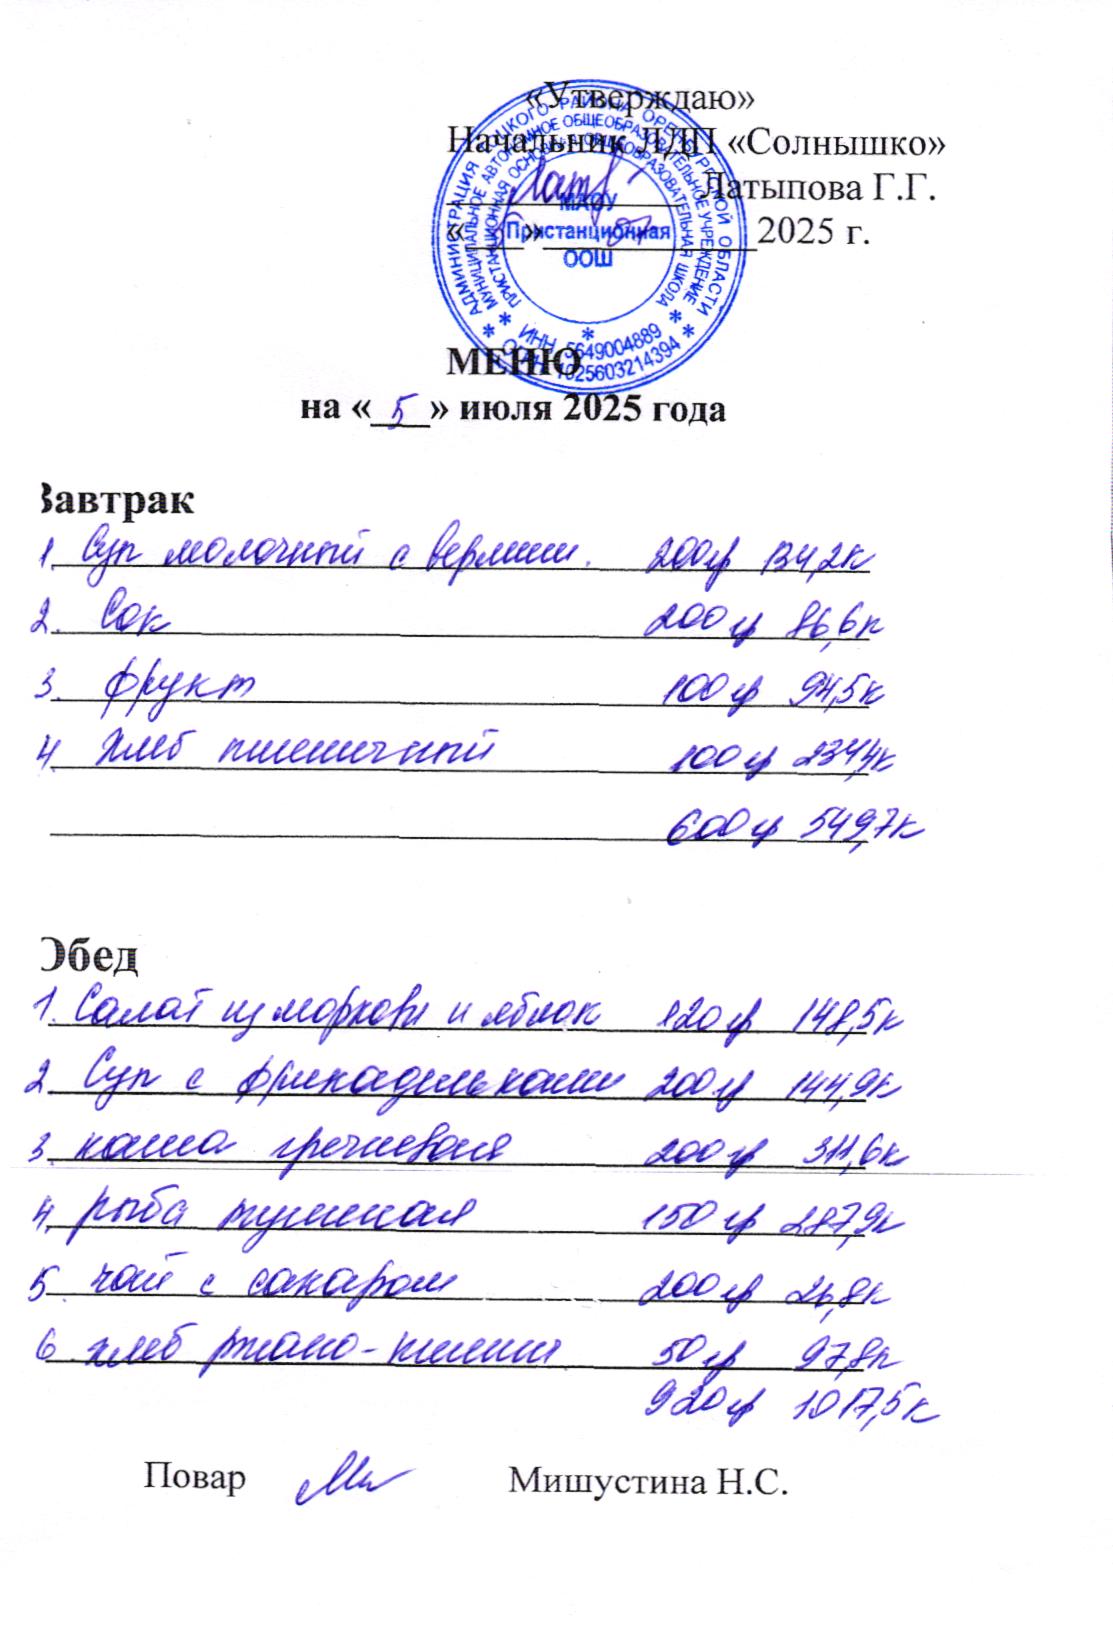 «Утверждаю»
Начальник ЛДП «Солнышко»
Латыпова Г.Г.
«5» 07 2025 г.
АДМИНИСТРАЦИЯ ТОЦКОГО РАЙОНА ОРЕНБУРГСКОЙ ОБЛАСТИ
МУНИЦИПАЛЬНОЕ АВТОНОМНОЕ ОБЩЕОБРАЗОВАТЕЛЬНОЕ УЧРЕЖДЕНИЕ
ПРИСТАНЦИОННАЯ ОСНОВНАЯ ОБЩЕОБРАЗОВАТЕЛЬНАЯ ШКОЛА
МАОУ
Пристанционная
ООШ
ИНН 5649004889
ОГРН 1025603214394
МЕНЮ
на «5» июля 2025 года
Завтрак
1. Суп молочный с вермиш. 200гр 134,2к
2. Сок 200гр 86,6к
3. фрукт 100гр 94,5к
4. Хлеб пшеничный 100гр 234,4к
600гр 549,7к
Обед
1. Салат из моркови и яблок 120гр 148,5к
2. Суп с фрикадельками 200гр 144,9к
3. каша гречневая 200гр 311,6к
4. рыба тушеная 150гр 287,9к
5. чай с сахаром 200гр 26,8к
6. хлеб ржано-пшенич 50гр 97,8к
920гр 1017,5к
Повар Мишустина Н.С.